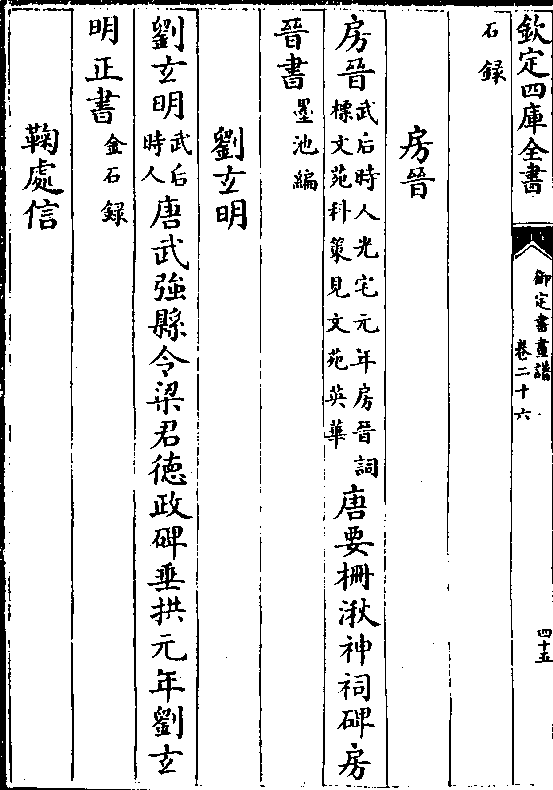 欽定四庫全書
御定書畫譜
卷二十六
四十五
石録
房晉
房晉武后時人光宅元年房晉詞
標文苑科策見文苑英華
唐要柵湫神祠碑房
晉書墨池編
劉玄明
劉玄明武后
時人
唐武強縣令梁君德政碑垂拱元年劉玄
明正書金石録
鞠處信